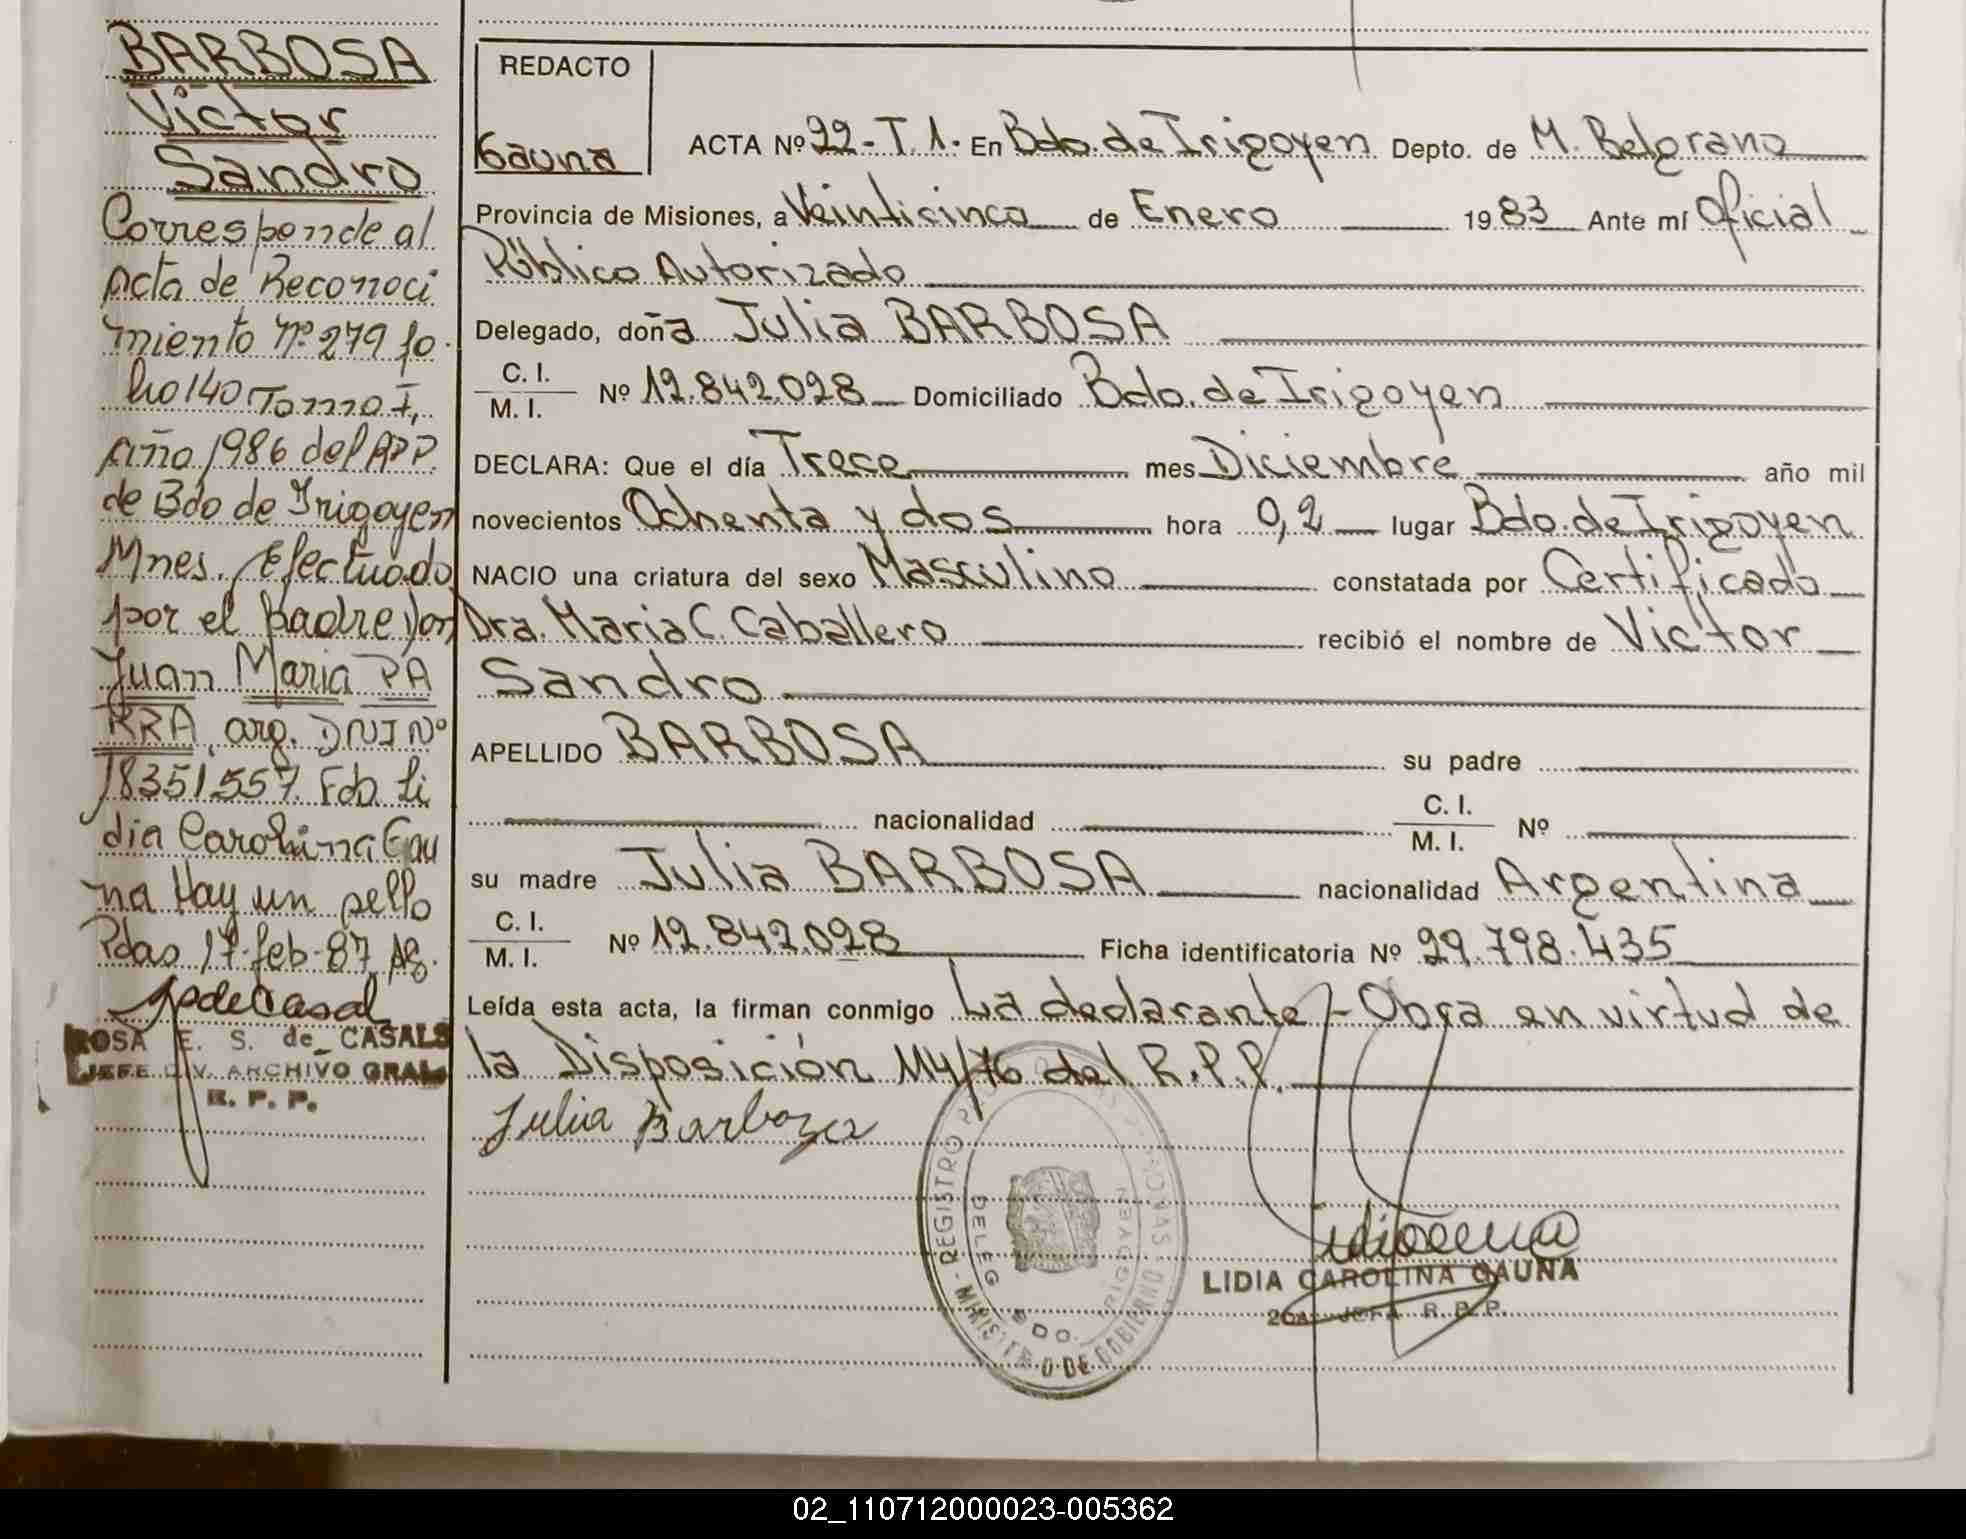 BARBOSA
Victor
Sandro
Corresponde al
Acta de Reconoci
miento Nº 279 fo
lio 140 Tomo I,
año 1986 del RPP.
de Bdo de Irigoyen
Mnes. Efectuado
por el padre Don
Juan Maria PA
RRA, arg. DNI Nº
18351.557. Fdo. Li
dia Carolina Gau
na Hay un sello
Pdas 17-feb-87
ROSA E. S. de CASALS
JEFE DIV. ARCHIVO GRAL
R. P. P.
REDACTO
Gauna
ACTA Nº 22-T.1. En Bdo. de Irigoyen Depto. de M. Belgrano
Provincia de Misiones, a Veinticinco de Enero 1983 Ante mí Oficial
Público Autorizado
Delegado, doña Julia BARBOSA
C. I.
M. I. Nº 12.842.028 Domiciliado Bdo. de Irigoyen
DECLARA: Que el día Trece mes Diciembre año mil
novecientos Ochenta y dos hora 0,2 lugar Bdo. de Irigoyen
NACIO una criatura del sexo Masculino constatada por Certificado
Dra. Maria C. Caballero recibió el nombre de Victor
Sandro
APELLIDO BARBOSA su padre
nacionalidad C. I.
M. I. Nº
su madre Julia BARBOSA nacionalidad Argentina
C. I.
M. I. Nº 12.842.028 Ficha identificatoria Nº 29.798.435
Leída esta acta, la firman conmigo La declarante - Obra en virtud de
la Disposición 114/76 del R.P.P.
Julia Barboza
REGISTRO PROV. DE LAS PERSONAS - MINISTERIO DE GOBIERNO
DELEG. BDO. IRIGOYEN
LIDIA CAROLINA GAUNA
2da. JEFA R. P. P.
02_110712000023-005362